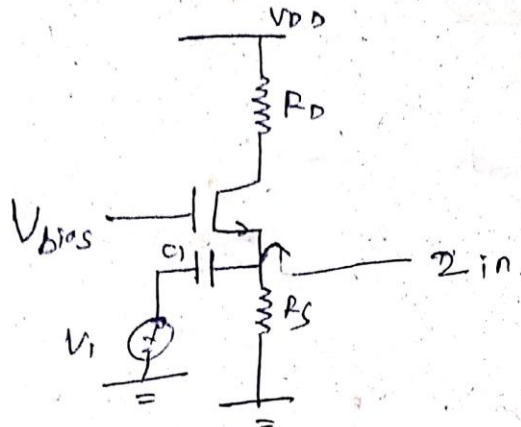 VDD
RD
Vbias
C1
Zin
RS
V1